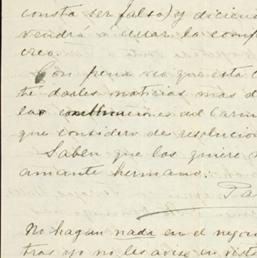 consta ser falso) y dicien
vendrá a
creo.
Con pena veo que esta
te darles noticias mas d
las del Carm
que considero de resolucion
Saben que los quiere
amante hermano.
Pa
No hagan nada en el nego
tras yo no les avise